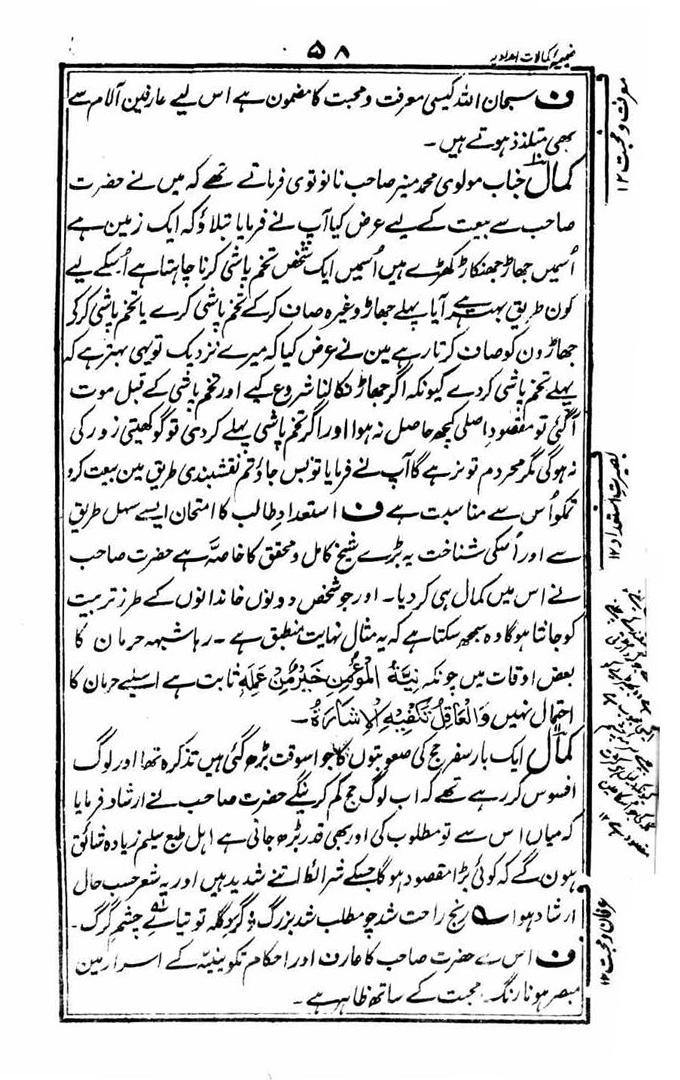 ضمیمہ کمالات امدادیہ
۵۸
ف سبحان اللہ کیسی معرفت و محبت کا مضمون ہے اس لیے عارفین آلام سے
بھی متلذذ ہوتے ہیں۔
کمال جناب مولوی محمد منیر صاحب نانوتوی فرماتے تھے کہ میں نے حضرت
صاحب سے بیعت کے لیے عرض کیا آپ نے فرمایا بتلاؤ کہ ایک زمین ہے
اُسمیں جھاڑ جھنکاڑ کھڑے ہیں اُسمیں ایک شخص تخم پاشی کرنا چاہتا ہے اُسکے لیے
کون طریق بہتر ہے آیا پہلے جھاڑ وغیرہ صاف کر کے تخم پاشی کرے یا تخم پاشی کر کی
جھاڑون کو صاف کرتا رہے مین نے عرض کیا کہ میرے نزدیک تو یہی بہتر ہے کہ
پہلے تخم پاشی کر دے کیونکہ اگر جھاڑ نکالنا شروع کیے اور تخم پاشی کے قبل موت
آگئی تو مقصودِ اصلی کچھ حاصل نہ ہوا اور اگر تخم پاشی پہلے کر دی تو گو کھیتی زور کی
نہ ہوگی مگر محروم تو نرہے گا آپ نے فرمایا تو بس جاؤ تم نقشبندی طریق مین بیعت کرو
تمکو اُس سے مناسبت ہے ف استعدادِ طالب کا امتحان ایسے سہل طریق
سے اور اُسکی شناخت یہ بڑے شیخ کامل و محقق کا خاصہ ہے حضرت صاحب
نے اس میں کمال ہی کر دیا۔ اور جو شخص دونوں خاندانوں کے طرز تربیت
کو جانتا ہو گا وہ سمجھ سکتا ہے کہ یہ مثال نہایت منطبق ہے۔ رہا شبہہ حرمان کا
بعض اوقات میں چونکہ نِیَّۃُ الْمُؤْمِنِ خَیْرٌ مِّنْ عَمَلِہٖ ثابت ہے اسلیے حرمان کا
احتمال نہیں وَالْعَاقِلُ تَکْفِیْہِ الْاِشَارَۃُ۔
کمال ایک بار سفر حج کی صعوبتوں کا جو اسوقت بڑھ گئی ہیں تذکرہ تھا اور لوگ
افسوس کر رہے تھے کہ اب لوگ حج کم کرینگے حضرت صاحب نے ارشاد فرمایا
کہ میاں اس سے تو مطلوب کی اور بھی قدر بڑھ جاتی ہے اہل طبع سلیم زیادہ شائق
ہون گے کہ کوئی بڑا مقصود ہوگا جسکے شرائط اتنے شدید ہیں اور یہ شعر حسب حال
ارشاد ہوا ے رنج راحت شد چو مطلب شد بزرگ ؛ گرد گلہ توتیائے چشم گرگ۔
ف اس سے حضرت صاحب کا عارف اور احکام تکوینیہ کے اسرار مین
مبصر ہونا رنگ محبت کے ساتھ ظاہر ہے۔
معرفت و محبت ۱۲
بصیرت استعداد ۱۲
عرفان و محبت ۱۲